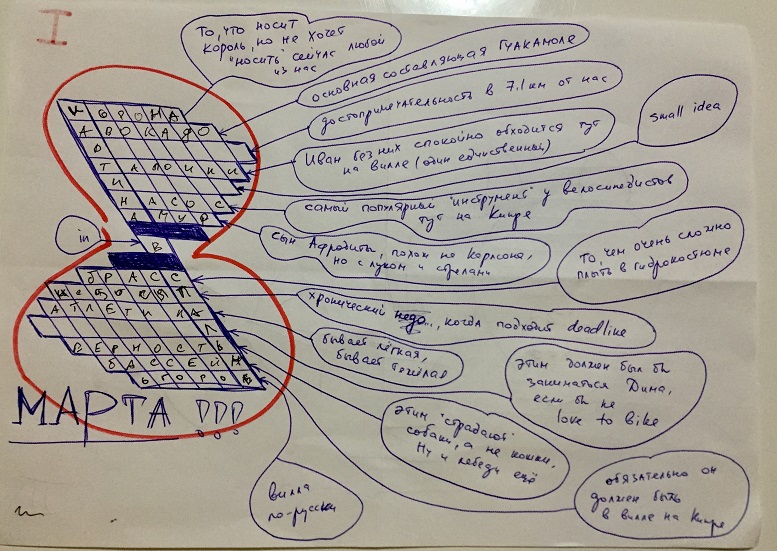 I
То, что носит
король, но не хочет
"носить" сейчас любой
из нас
основная составляющая гуакамоле
достопримечательность в 7.1 км от нас
Иван без них спокойно обходится тут
на вилле (один единственный)
small idea
самый популярный "инструмент" у велосипедистов
тут на Кипре
сын Афродиты, похож на Карлсона,
но с луком и стрелами
то, чем очень сложно
плыть в гидрокостюме
in
хронический недо..., когда подходит deadline
бывает лёгкая,
бывает тяжёлая
этим должен был бы
заниматься Дима,
если бы не
love to bike
этим "страдают"
собаки, а не кошки.
Ну и лебеди ещё
обязательно он
должен быть
в вилле на Кипре
вилла
по-русски
АВОКАДО
ТАПОЧКИ
И
НАСОС
АМУР
В
БРАСС
АТЛЕТИКА
ВЕРНОСТЬ
БАССЕЙН
МАРТА